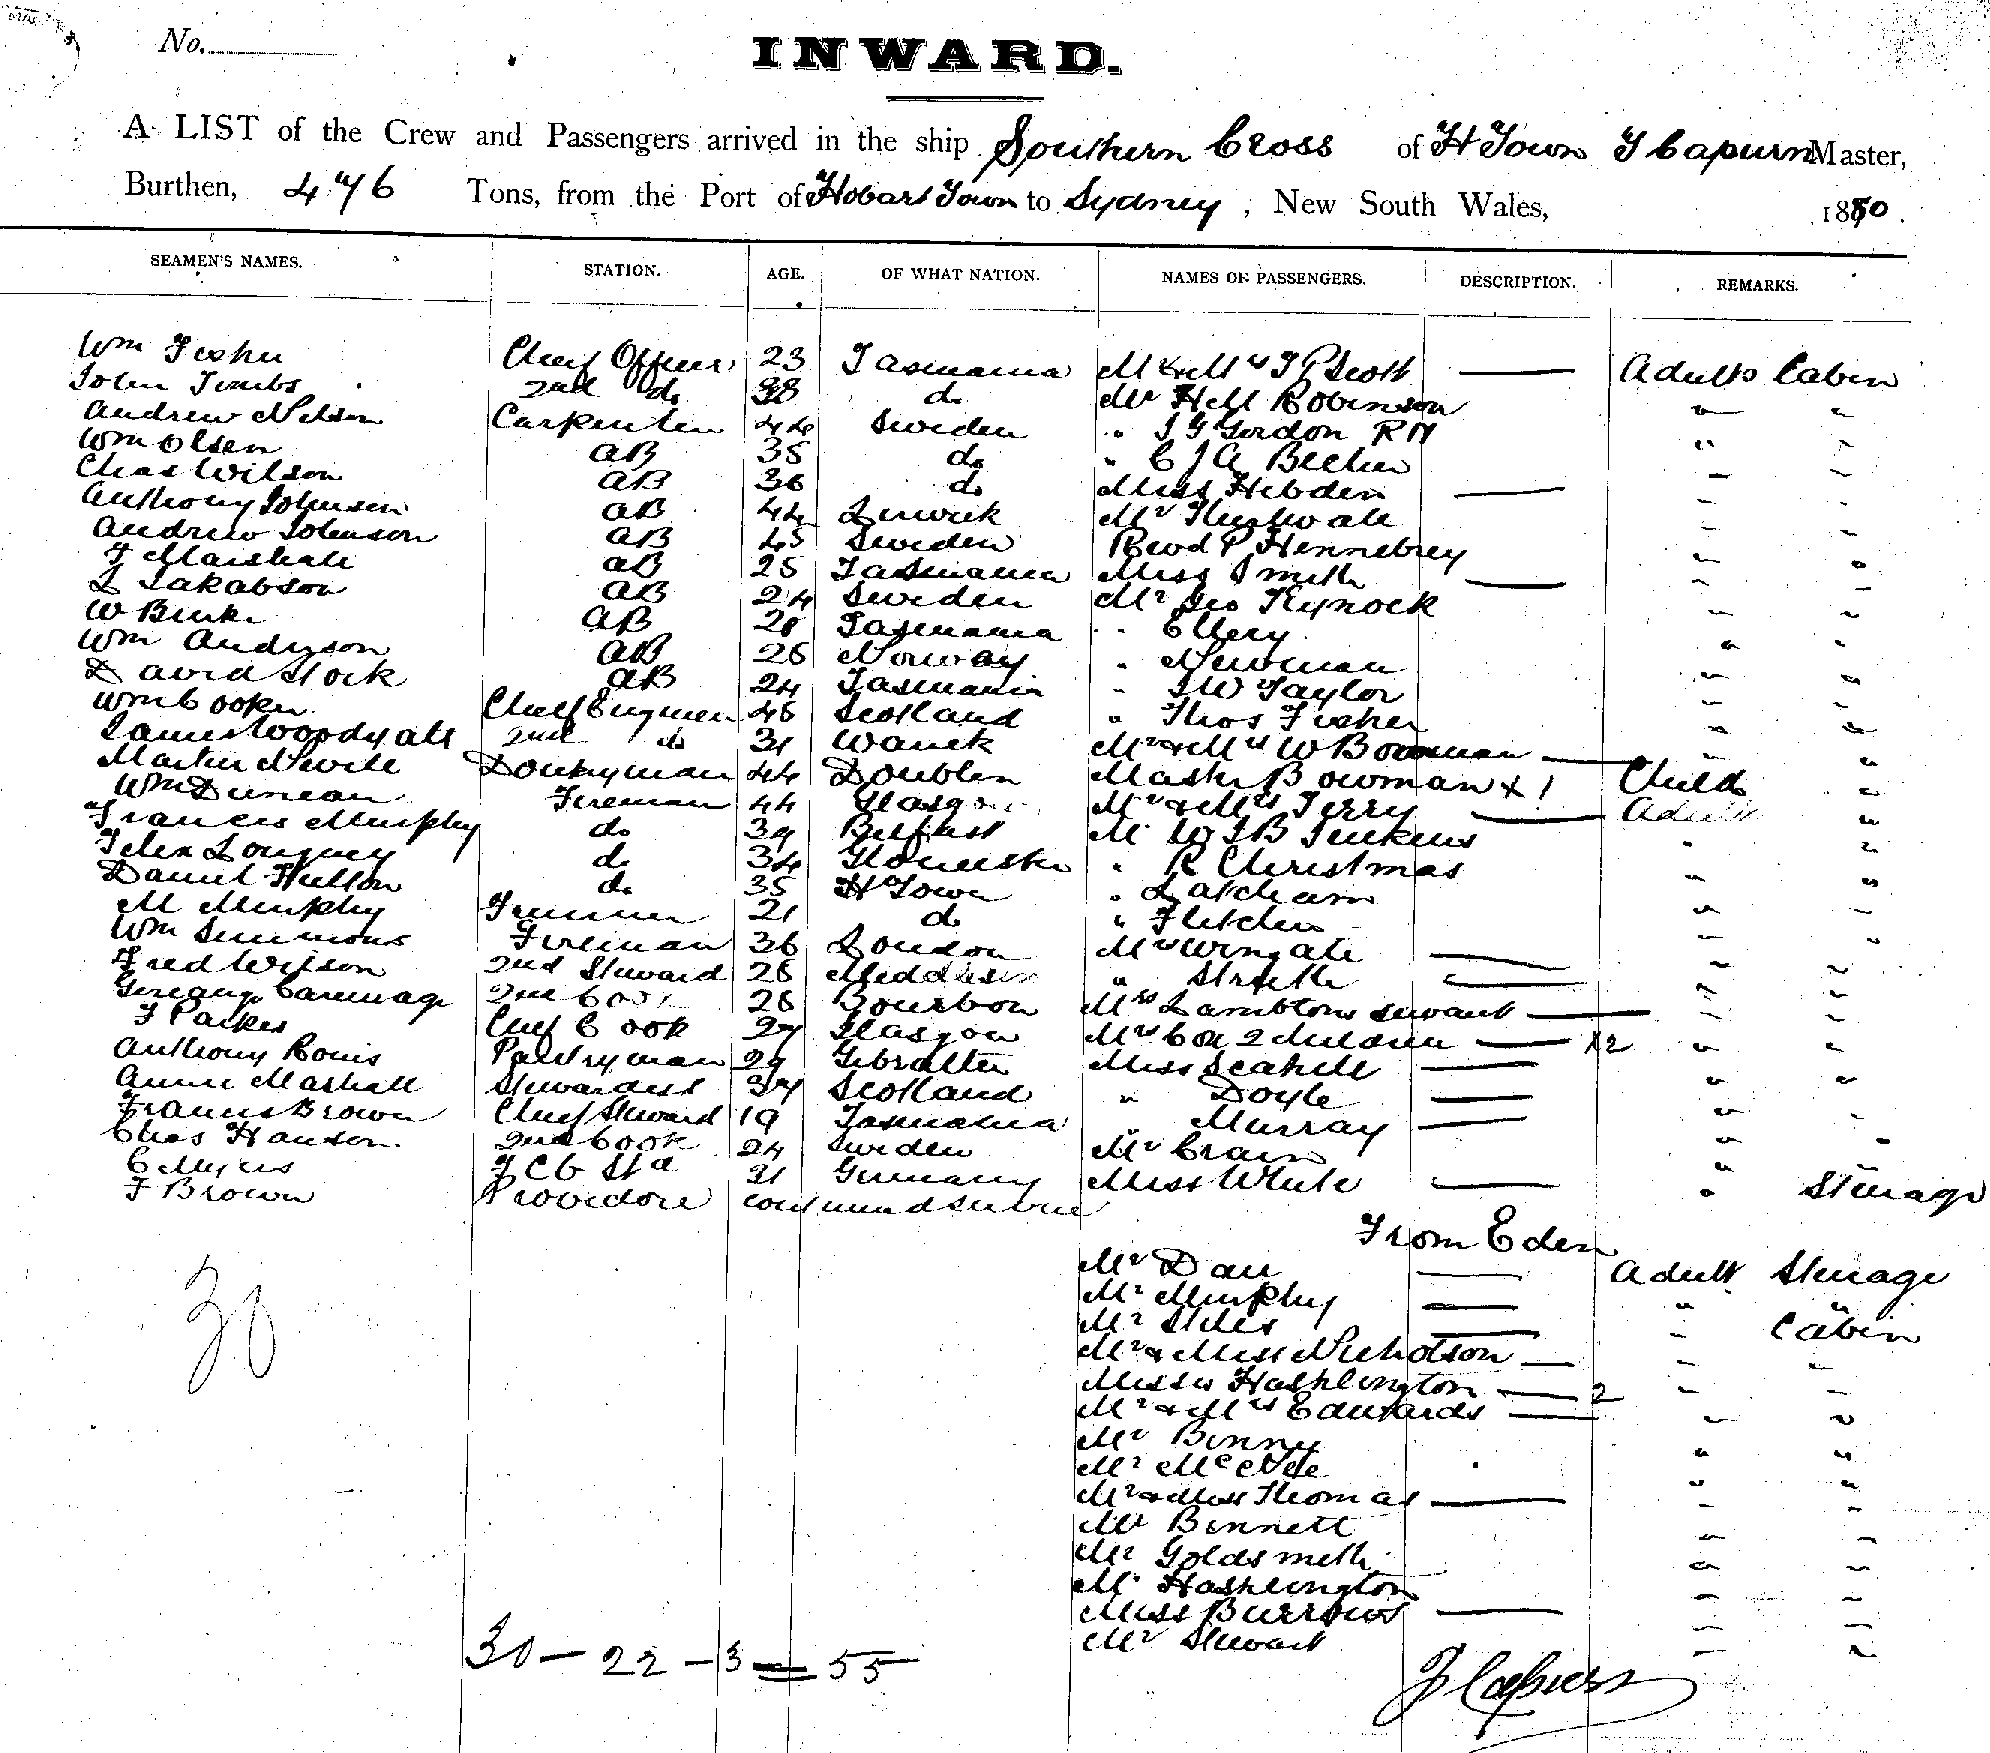 No.
INWARD.
A LIST of the Crew and Passengers arrived in the ship Southern Cross of H Town J Capurn Master,
Burthen, 476 Tons, from the Port of Hobart Town to Sydney, New South Wales, 1880.
SEAMEN'S NAMES. STATION. AGE. OF WHAT NATION. NAMES OF PASSENGERS. DESCRIPTION. REMARKS.
Wm Fisher Chief Officer 23 Tasmania Mr & Mrs Scott Adults Cabin
John Tombs 2nd do do Mr Robinson
Andrew Nelson Carpenter 44 Sweden " J G Gordon RN
Wm Olsen AB 35 do " C J A
Chas Wilson AB 36 do Miss Hebden
Anthony Johnson AB 44 Mr
Andrew Johnson AB 45 Sweden Revd P Hennebrey
J Marshall AB 25 Tasmania Miss Smith
L Jakobson AB 24 Sweden Mr Geo Kynock
W Burke AB Tasmania " Ellery
Wm Anderson AB 26 Norway " Newman
David Stock AB 24 Tasmania " J W Taylor
Wm Cooker Chief Engineer 46 Scotland " Thos Fisher
James Woodyatt 2nd do 31 Mr & Mrs W Bowman
Martin Nevile Donkeyman 44 Doublin Master Bowman x 1 Child
Wm Duncan Fireman 44 Glasgow Mr & Mrs Terry Adult
Francis Murphy do 39 Belfast Mr W J B Jenkins
do 34 Gloucester " R Christmas
Daniel Hutton do 35 H Town " Latcham
M Murphy 21 do " Fletcher
Wm Simmons Fireman 36 London Mrs Wingate
Fred Wilson 2nd Steward 26 "
26 Bourbon Mrs Lambtons servant
J Parkes Chef Cook 27 Glasgow Mrs 2 children x2
Anthony Pantryman 29 Gibralter Miss
Annie Marshall Stewardess 37 Scotland " Doyle
Francis Brown Chief Steward 19 Tasmania " Murray
Chas Hanson 2nd Cook 24 Sweden Mr Crain
31 Germany Miss White Steerage
F Brown Providore
From Eden
30
Mr Adult Steerage
Mr Murphy "
Mr Stiles Cabin
Mr & Miss Nicholson
Misses Hashlington 2
Mr & Mrs Edwards
Mr Binny
Mr McNee
Mr & Miss Thomas
Mr Bennett
Mr Goldsmith
Mr Hashlington
Miss Burrows
Mr Stewart
30 — 22 — 3 = 55
J Capurn